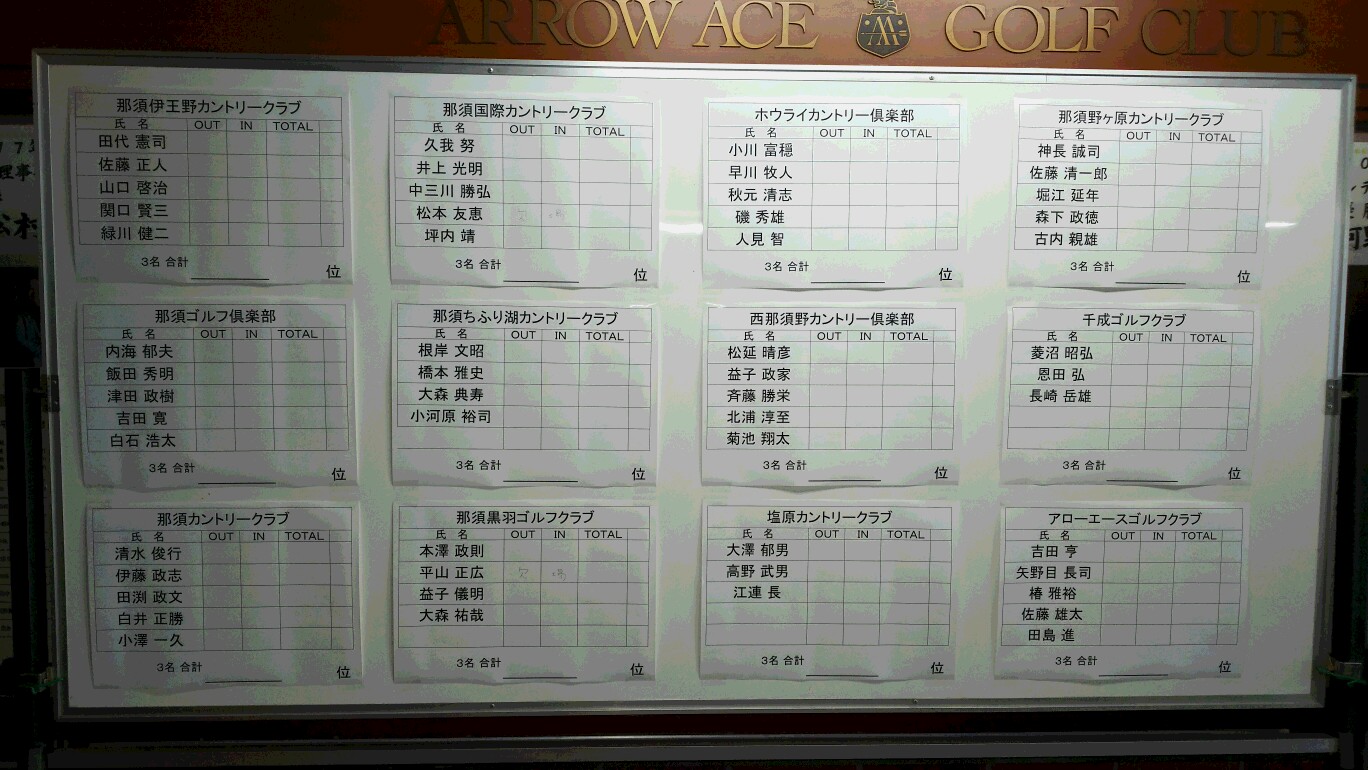 ARROW ACE GOLF CLUB
那須伊王野カントリークラブ
氏 名 OUT IN TOTAL
田代 憲司
佐藤 正人
山口 啓治
関口 賢三
緑川 健二
3名 合計 位
那須国際カントリークラブ
氏 名 OUT IN TOTAL
久我 努
井上 光明
中三川 勝弘
松本 友恵 欠 場
坪内 靖
3名 合計 位
ホウライカントリー倶楽部
氏 名 OUT IN TOTAL
小川 富穏
早川 牧人
秋元 清志
磯 秀雄
人見 智
3名 合計 位
那須野ヶ原カントリークラブ
氏 名 OUT IN TOTAL
神長 誠司
佐藤 清一郎
堀江 延年
森下 政徳
古内 親雄
3名 合計 位
那須ゴルフ倶楽部
氏 名 OUT IN TOTAL
内海 郁夫
飯田 秀明
津田 政樹
吉田 寛
白石 浩太
3名 合計 位
那須ちふり湖カントリークラブ
氏 名 OUT IN TOTAL
根岸 文昭
橋本 雅史
大森 典寿
小河原 裕司
3名 合計 位
西那須野カントリー倶楽部
氏 名 OUT IN TOTAL
松延 晴彦
益子 政家
斉藤 勝栄
北浦 淳至
菊池 翔太
3名 合計 位
千成ゴルフクラブ
氏 名 OUT IN TOTAL
菱沼 昭弘
恩田 弘
長崎 岳雄
3名 合計 位
那須カントリークラブ
氏 名 OUT IN TOTAL
清水 俊行
伊藤 政志
田渕 政文
白井 正勝
小澤 一久
3名 合計 位
那須黒羽ゴルフクラブ
氏 名 OUT IN TOTAL
本澤 政則
平山 正広 欠 場
益子 儀明
大森 祐哉
3名 合計 位
塩原カントリークラブ
氏 名 OUT IN TOTAL
大澤 郁男
高野 武男
江連 長
3名 合計 位
アローエースゴルフクラブ
氏 名 OUT IN TOTAL
吉田 亨
矢野目 長司
椿 雅裕
佐藤 雄太
田島 進
3名 合計 位